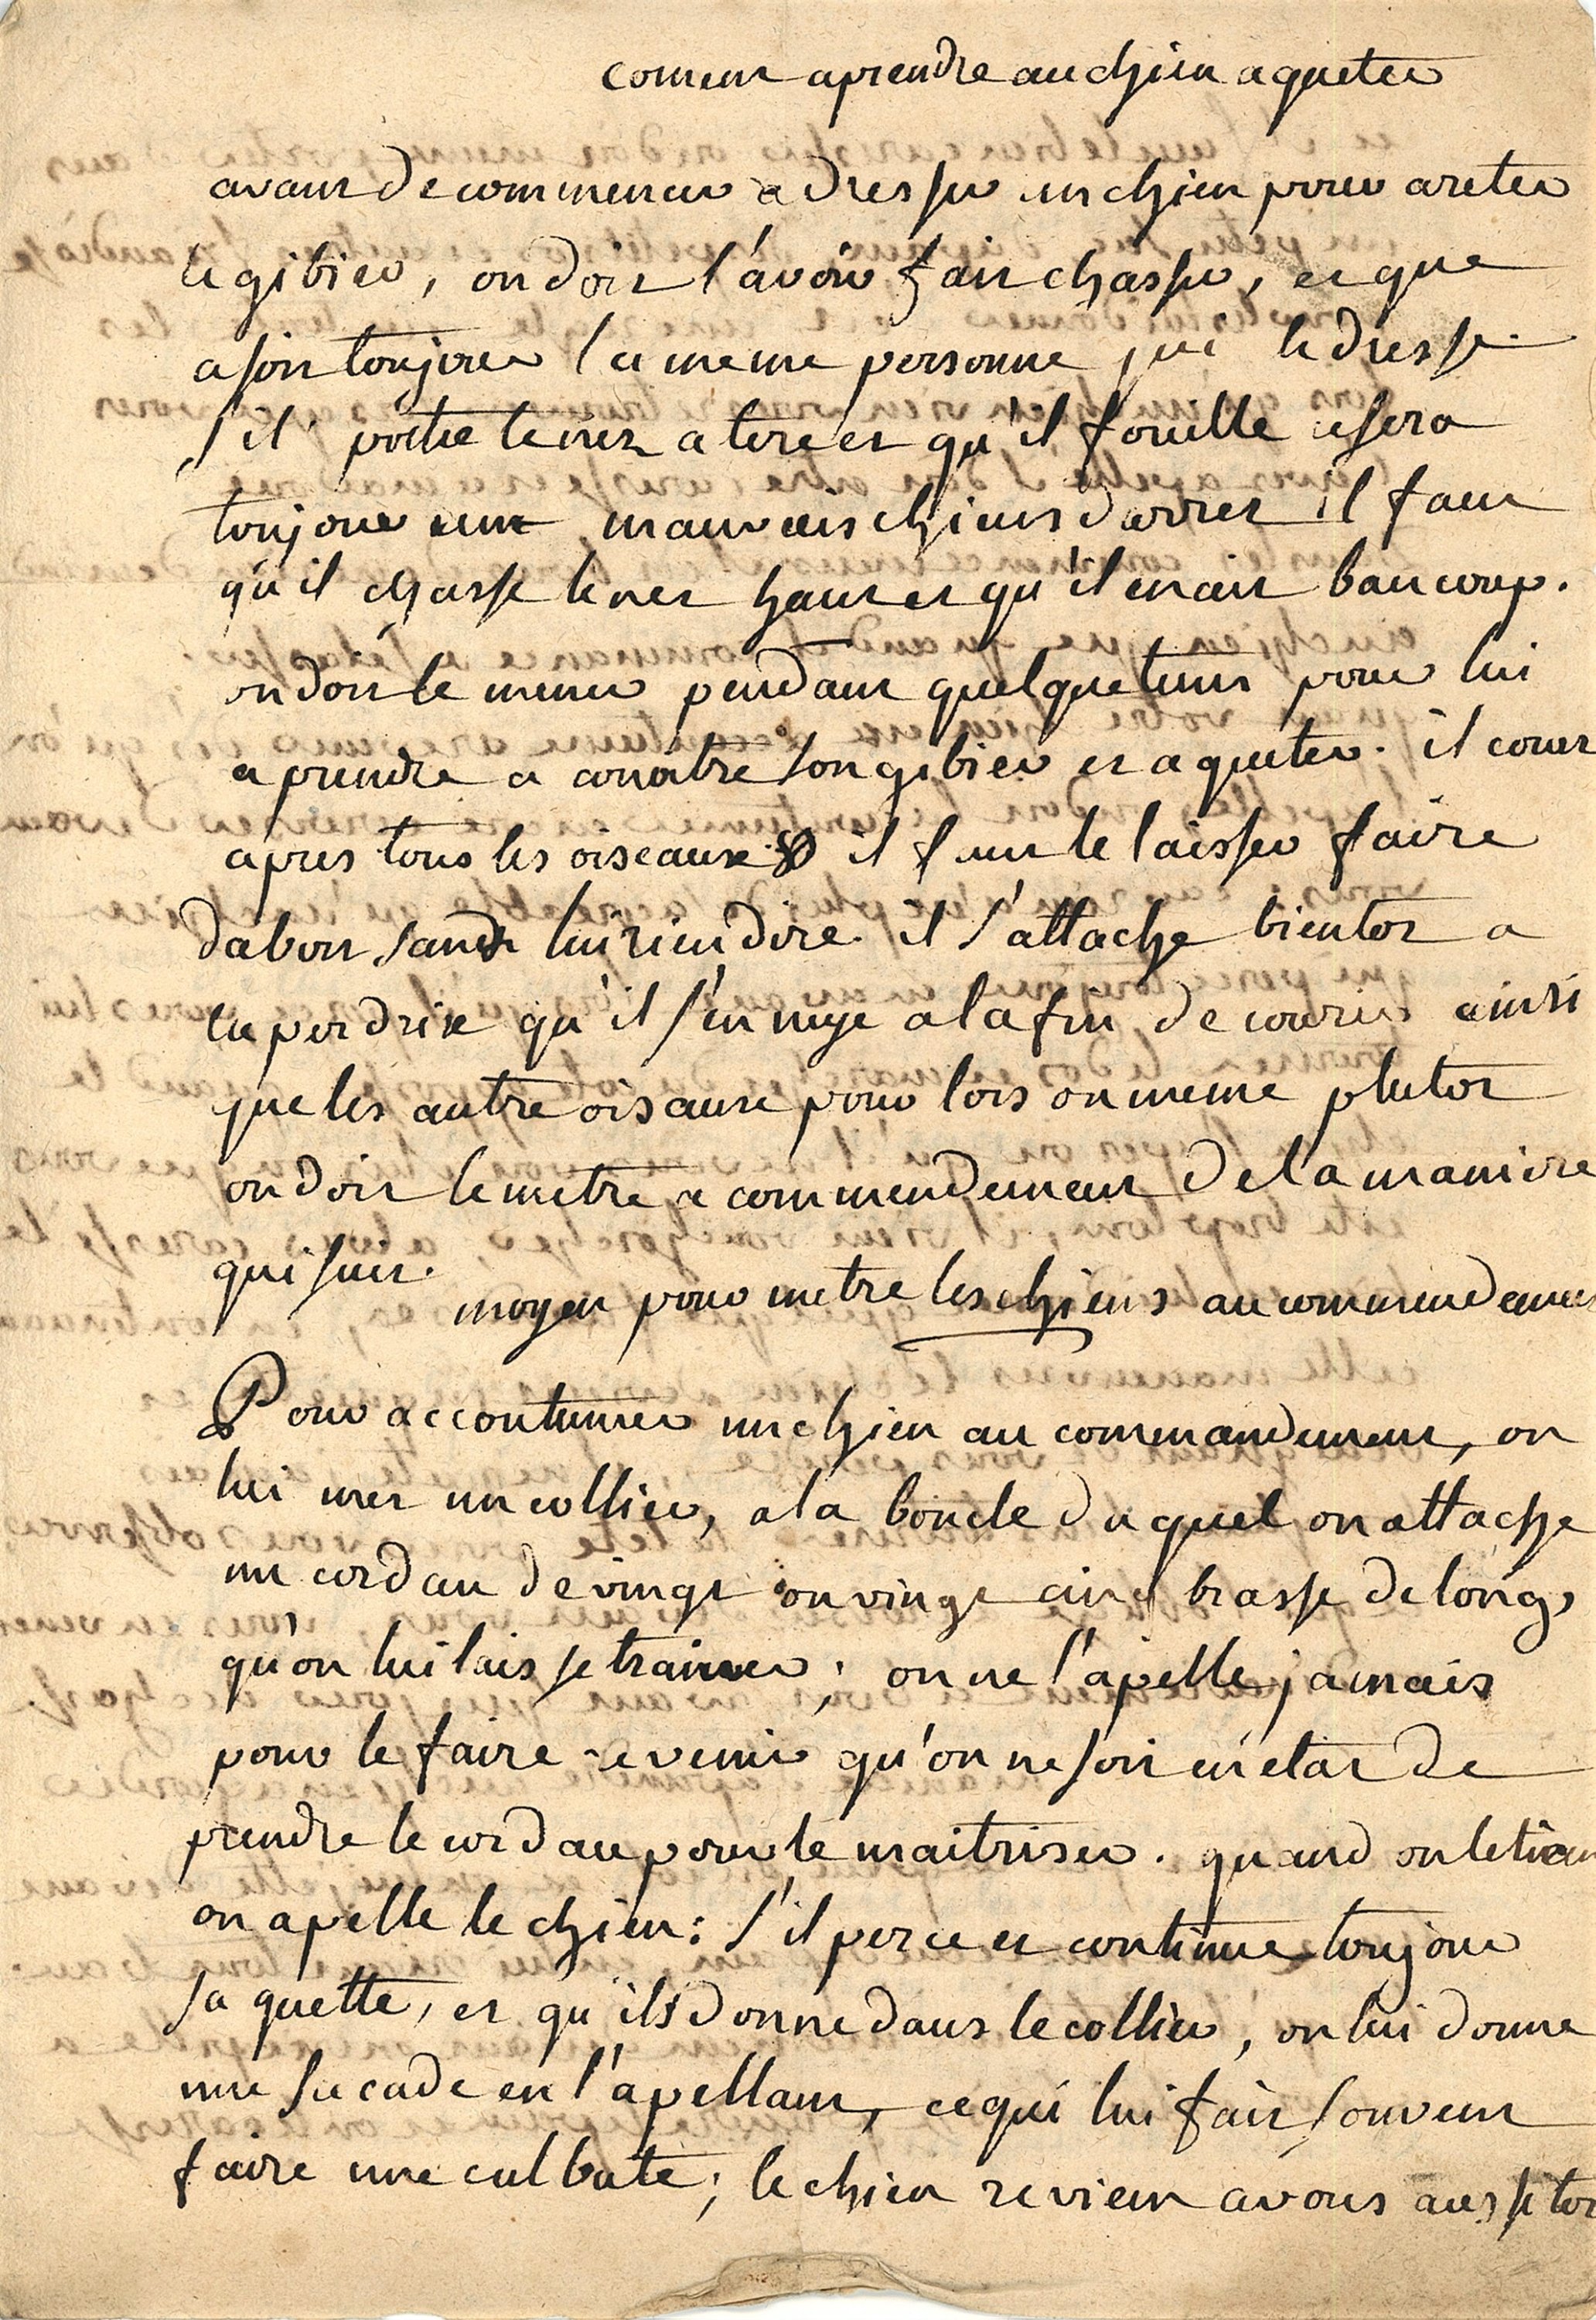 coment aprendre au chien a queter
avant de commencer a dresser un chien pour areter
le gibier, on doit l'avoir fait chasser, et que
ce soit toujour la meme personne qui le dresse.
s'il porte le nez a tere et qu'il fouille ce sera
toujour un mauvais chiens d'arret il faut
qu'il chasse le nez haut et qu'il en ait baucoup.
on doit le mener pendant quelque tems pour lui
aprendre a conoitre son gibier et a queter. il court
apres tous les oiseaux il faut le laisser faire
dabort sans lui rien dire. il s'attache bientot a
la perdrix qu'il s'ennuye a la fin de courir ainsi
que les autre oisaux pour lors ou meme plutot
on doit le metre a commendement de la maniere
qui suit.
moyen pour metre les chiens au commendement
Pour accoutumer un chien au commandement, on
lui met un collier, a la boucle du quel on attache
un cordau de vingt ou vingt cinq brasse de long,
qu'on lui laisse trainer; on ne l'apelle jamais
pour le faire revenir qu'on ne soit en etat de
prendre le cordau pour le maitriser. quand on le tient
on apelle le chien: s'il perce et continue toujour
sa quette, et qu'ils donne dans le collier, on lui donne
une sacade en l'apellant, ce qui lui fait souvent
faire une culbute; le chien revient a vous aussitot